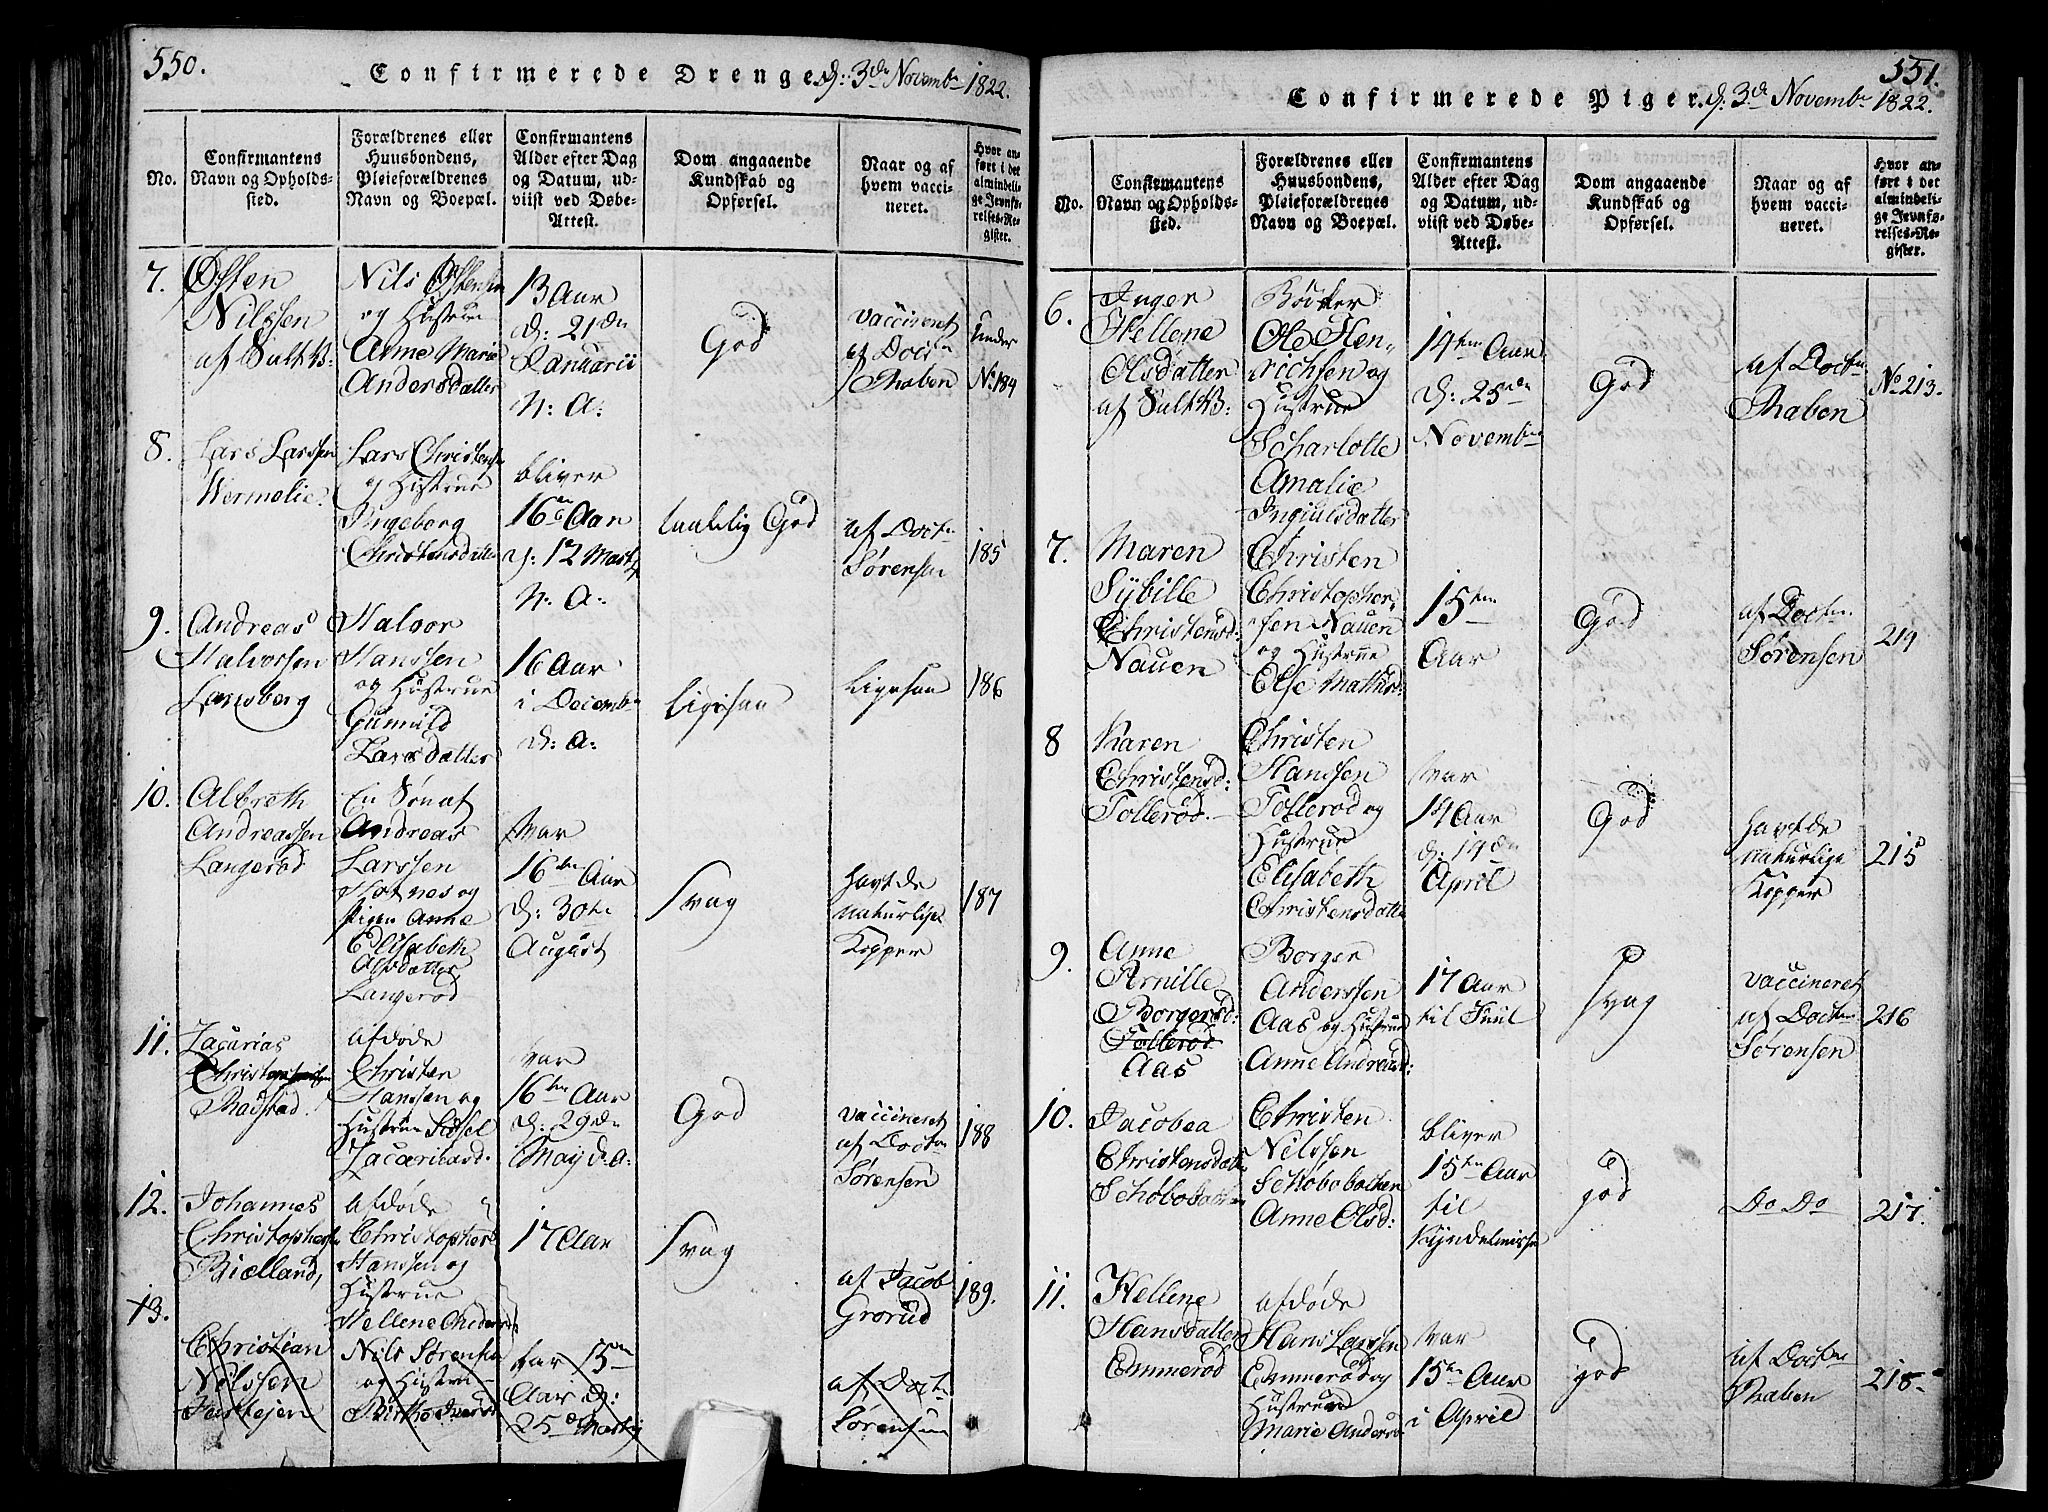 550.
Confirmerede Drenge d: 3de Novembr 1822.
No.
Confirmantens Navn og Opholdssted.
Forældrenes eller Huusbondens, Pleieforældrenes Navn og Boepæl.
Confirmantens Alder efter Dag og Datum, udviist ved Døbe-Attest.
Dom angaaende Kundskab og Opførsel.
Naar og af hvem vaccineret.
Hvor anført i det almindelige Jevnførelses-Register.
7.
Østen
Nilssen
af Salt V:
Nils Østensen
og Hustrue
Anne Marie
Andersdatter
13 Aar
d: 21de
Januarii
h: A:
God
vaccineret
af Doct
Raben
Under
No 184
8.
Lars Larssen
Wermelie
Lars Christensen
og Hustrue
Ingeborg
Christensdatter
bliver
16 Aar
d: 12 Martz
h: A:
taalelig God
af Doct
Sørensen
185
9.
Andreas
Halvorssen
Lansberg
Halvor
Hanssen
og Hustrue
Gunnild
Larsdatter
16 Aar
i Decembr
d: A:
Ligesaa
Ligesaa
186
10.
Albreth
Andreassen
Langerød
En Søn af
Andreas
Larssen
Holtnes og
Pigen Anne
Elisabeth
Alvsdatter
Langerød
var
16ten Aar
d: 30te
August
Svag
havt de
naturlige
Kopper
187
11.
Zacarias
Christenssen
afdøde
Christen
Hanssen og
Hustrue Sidsel
Zacariasd.
var
16ten Aar
d: 29de
May d: A:
God
vaccineret
af Doct
Sørensen
188
12.
Johannes
Christophersen
Biælland,
afdøde
Christopher
Hanssen og
Hustrue
Hellene
17 Aar
Svag
af Jacob
Grorud
189.
13.
Christian
Nilssen
Nils Sørensen
og Hustrue
var 15
Aar d:
25de Martij
af Doct
Sørensen
551.
Confirmerede Piger d: 3de Novembr 1822.
No.
Confirmantens Navn og Opholdssted.
Forældrenes eller Huusbondens, Pleieforældrenes Navn og Boepæl.
Confirmantens Alder efter Dag og Datum, udviist ved Døbe-Attest.
Dom angaaende Kundskab og Opførsel.
Naar og af hvem vaccineret.
Hvor anført i det almindelige Jevnførelses-Register.
6.
Inger
Hellene
Olsdatter
af Salt V:
Bödker
Ole Hen-
richsen og
Hustrue
Scharlotte
Amalie
14ten Aar
d: 25de
Novembr
God
af Doctr
Raben
No 213.
7.
Maren
Sÿbille
Christensd:
Nauen
Christen
Christopher-
sen Nauen
og Hustrue
Else Mathisd:
15ten
Aar
God
af Doctr
Sørensen
214
8
Karen
Christensd:
Tollerød.
Christen
Hanssen
Tollerød og
Hustrue
Elisabeth
Christensdatter
var
14 Aar
d: 14de
April
God
havt de
naturlige
Kopper
215
9.
Anne
Arnille
Borgersd:
Tollerød
Aas
Borger
Anderssen
Aas og Hustrue
Anne Andreasd:
17 Aar
til Juul
Svag
vaccineret
af Doctr
Sørensen
216
10.
Jacobea
Christensdatter
Christen
Nilssen
Schobobachen
Anne Olsd:
bliver
15ten Aar
til
Kyndelmisse
god
Do Do
217.
11.
Hellene
Hansdatter
Emmerød
afdøde
Hans Larssen
Emmerød og
Hustrue
Marie Andersd:
var
15ten Aar
i April
god
af Doctr
Raben
218.